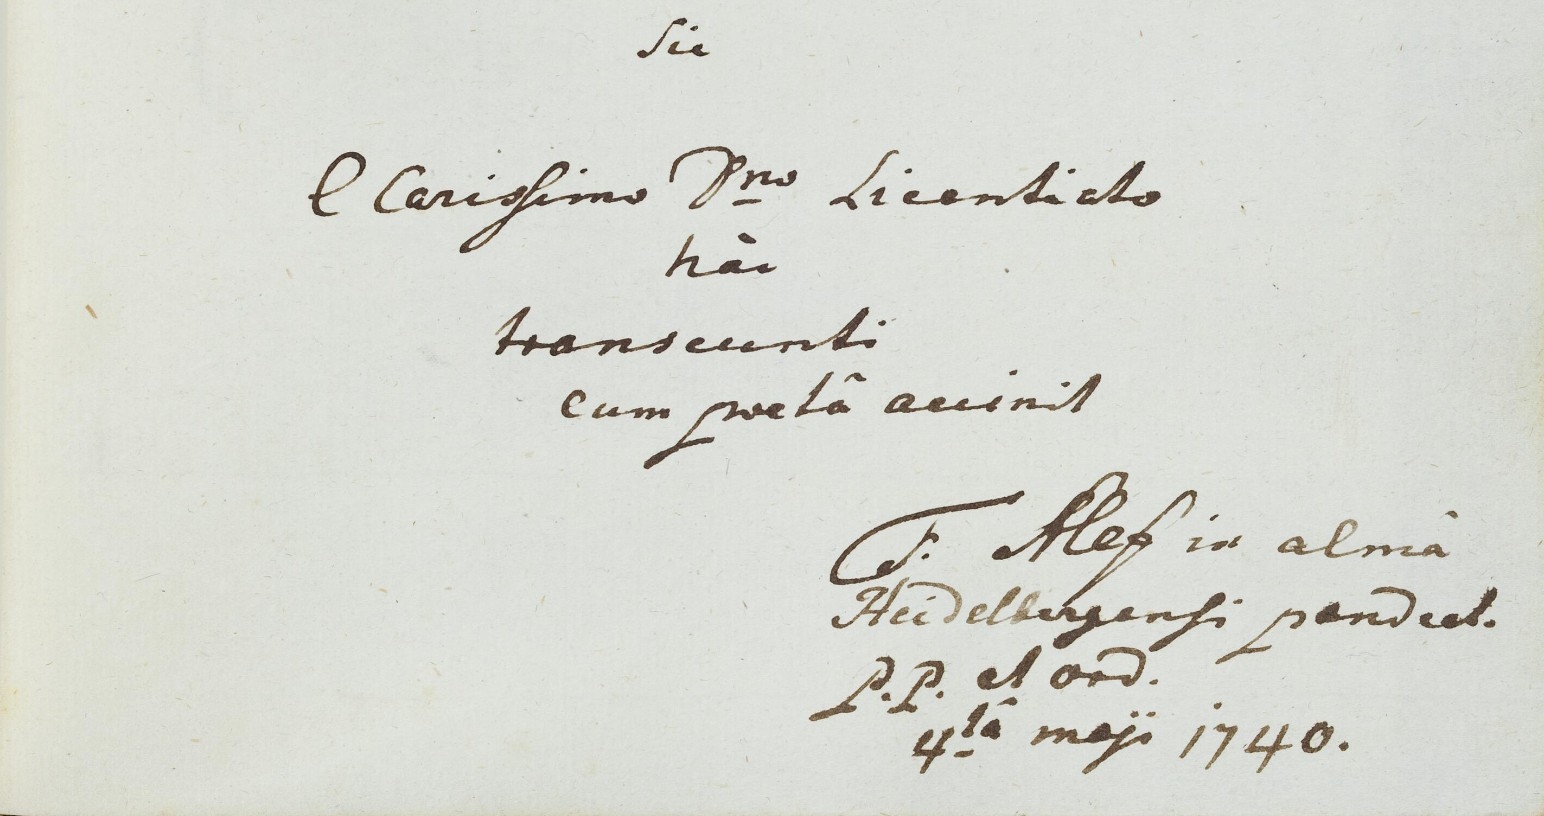 Sic
Clarissimo Dno Licentiato
hàc
transeunti
cum poetâ accinit
F. Alef in almâ
Heidelbergensi pandect.
P.P. et ord.
4tâ maji 1740.